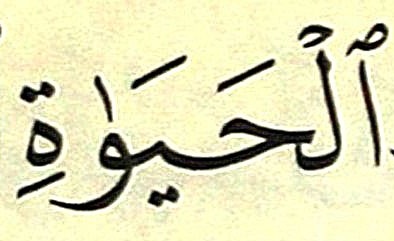 ٱلْحَيَوٰةِ